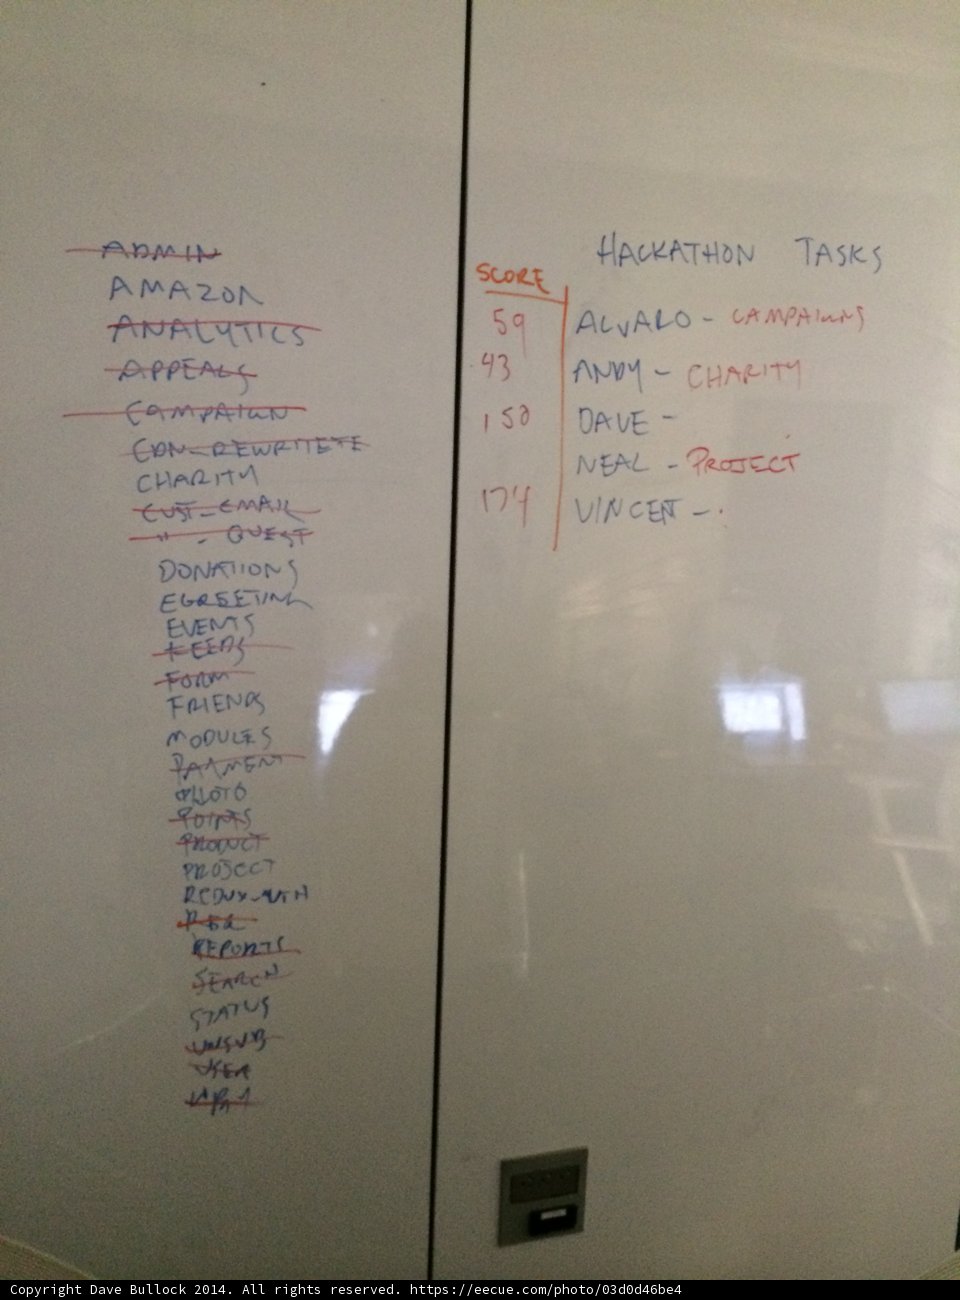 ADMIN
AMAZON
ANALYTICS
APPEALS
CAMPAIGN
CDN-REWRITETE
CHARITY
CUST-EMAIL
" - QUEST
DONATIONS
EGREETING
EVENTS
FEEDS
FORM
FRIENDS
MODULES
PAYMENT
PHOTO
POINTS
PRODUCT
PROJECT
REDUX-AUTH
REPORTS
SEARCH
STATUS
UNSUB
USER
HACKATHON TASKS
SCORE
59 ALVARO - CAMPAIGNS
43 ANDY - CHARITY
150 DAVE -
NEAL - PROJECT
174 VINCENT -
Copyright Dave Bullock 2014. All rights reserved. https://eecue.com/photo/03d0d46be4